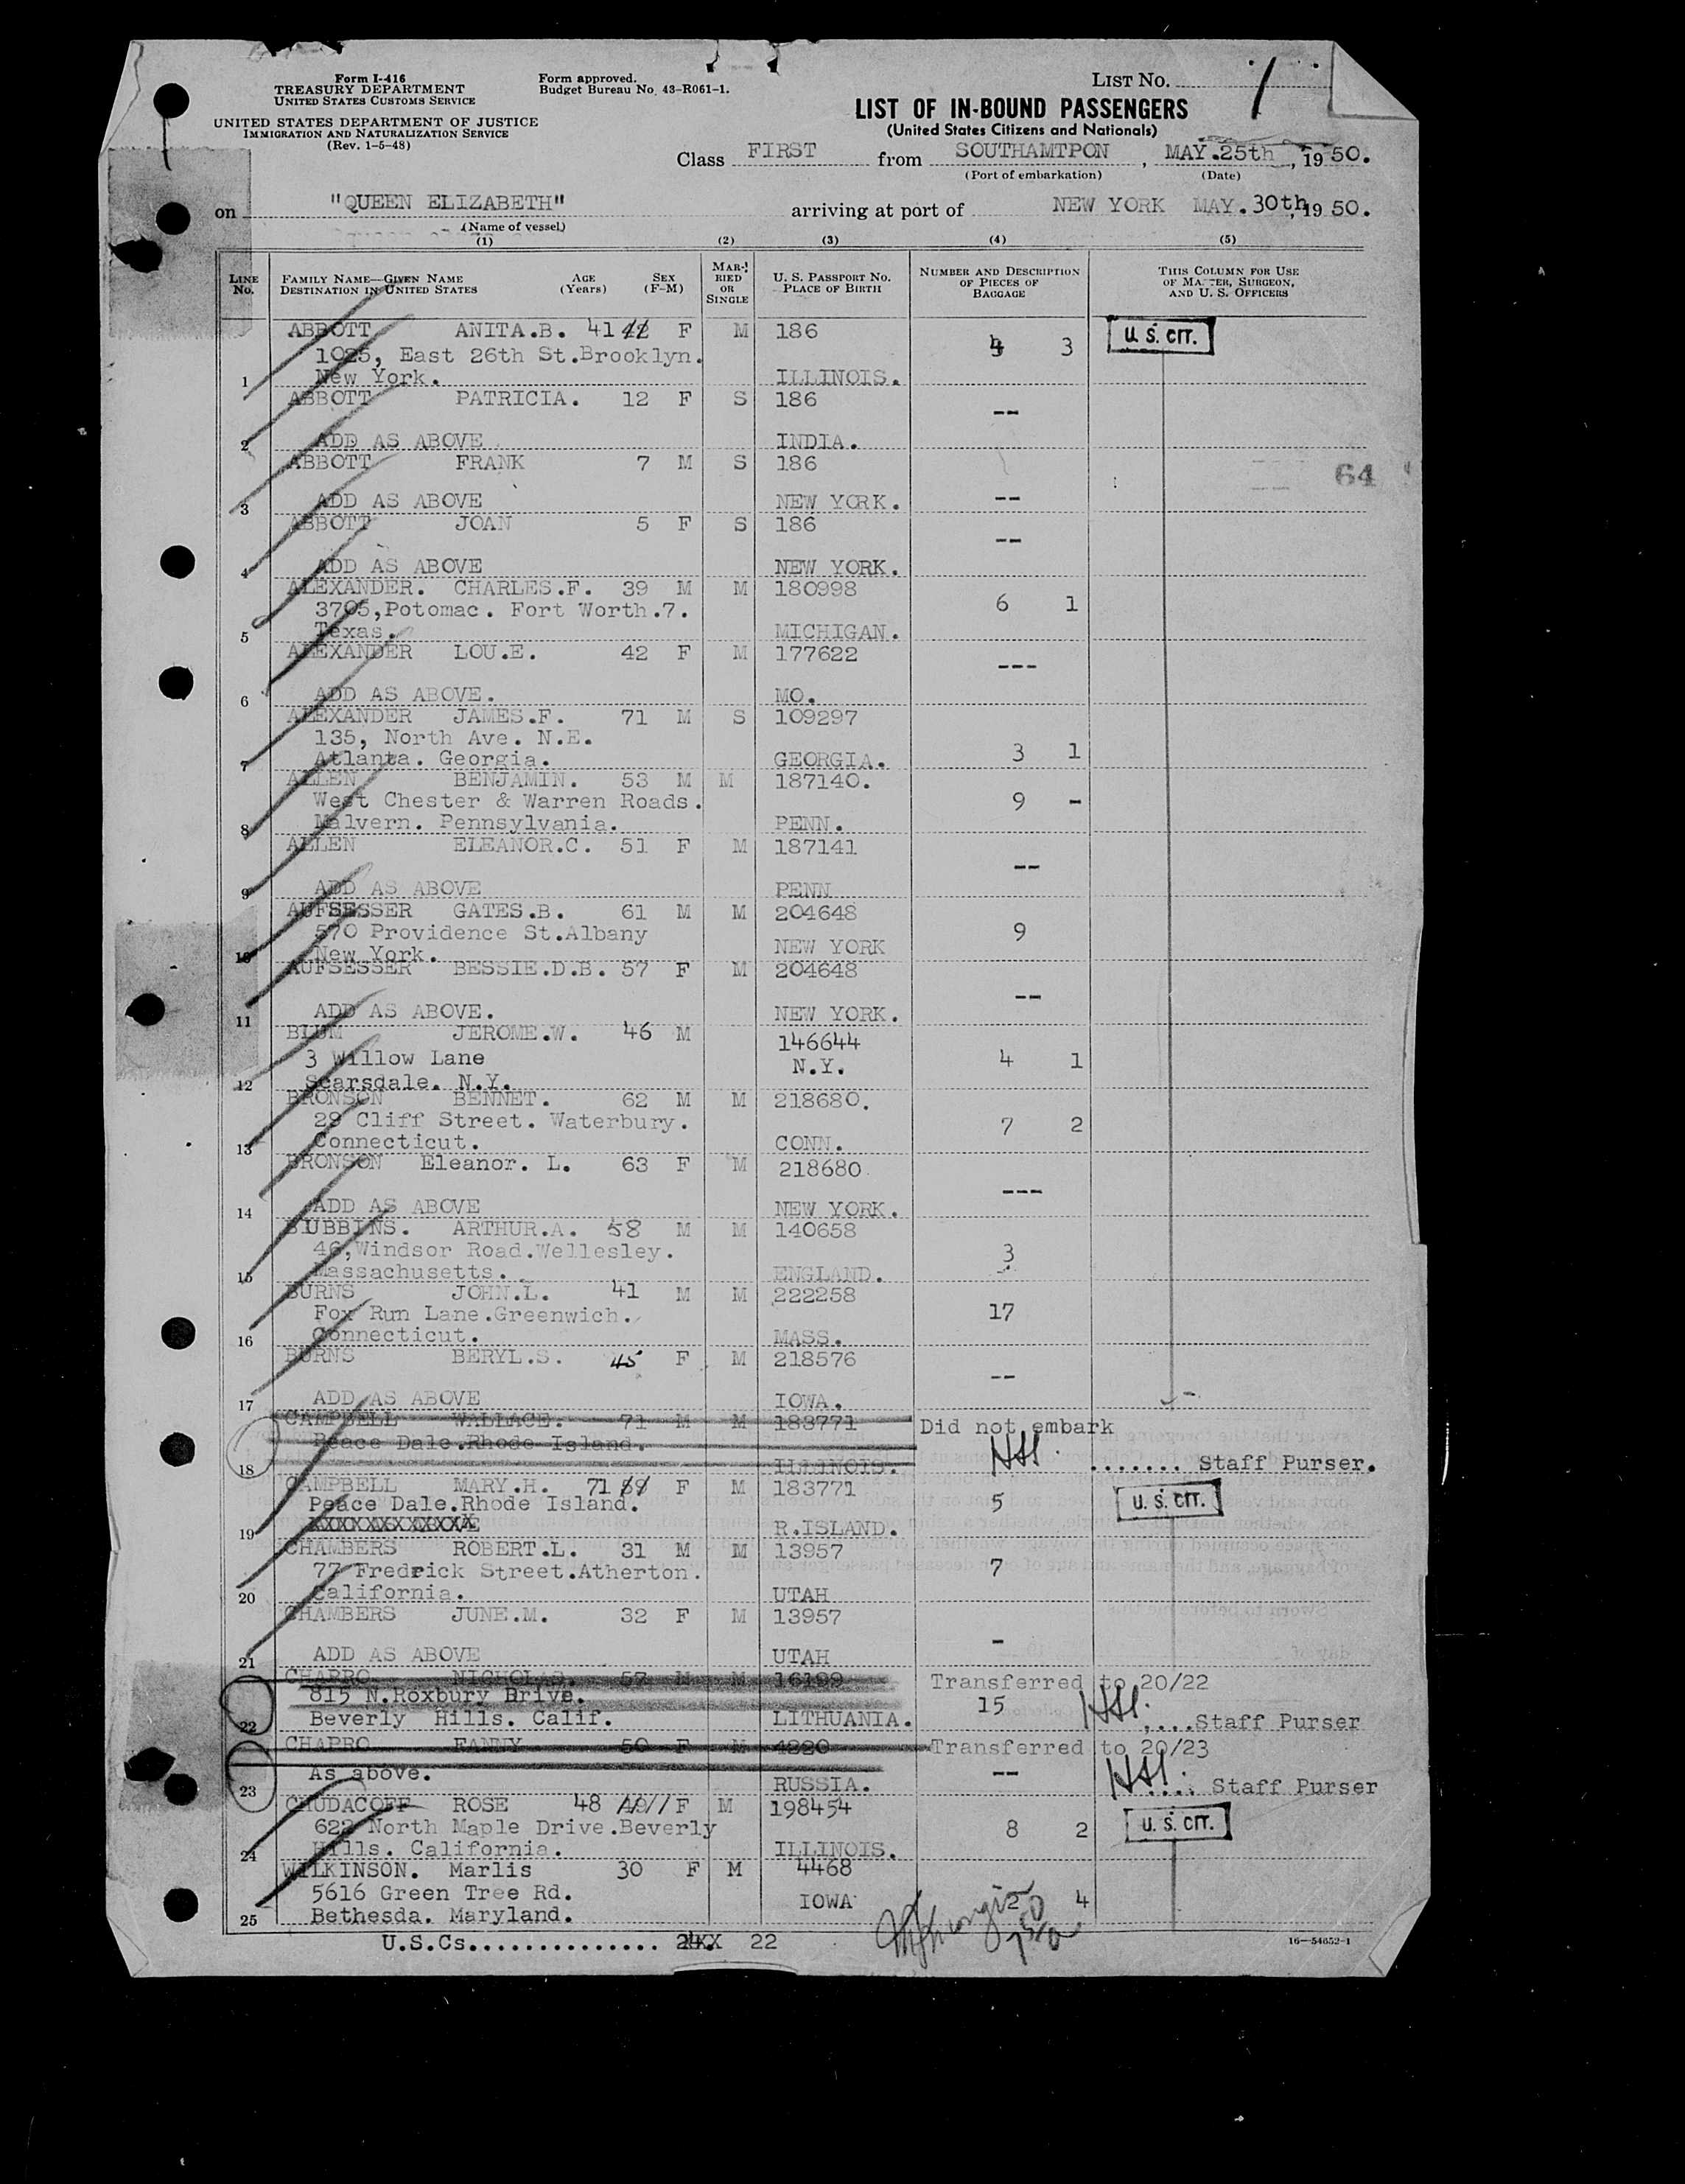 Form I-416
TREASURY DEPARTMENT
UNITED STATES CUSTOMS SERVICE
UNITED STATES DEPARTMENT OF JUSTICE
IMMIGRATION AND NATURALIZATION SERVICE
(Rev. 1-5-48)
Form approved.
Budget Bureau No. 43-R061-1.
LIST NO. 1
LIST OF IN-BOUND PASSENGERS
(United States Citizens and Nationals)
Class FIRST from SOUTHAMTPON, MAY.25th, 1950.
(Port of embarkation) (Date)
on "QUEEN ELIZABETH" arriving at port of NEW YORK MAY.30th, 1950.
(Name of vessel)
(1) (2) (3) (4) (5)
LINE No. FAMILY NAME—GIVEN NAME DESTINATION IN UNITED STATES AGE (Years) SEX (F-M) MARRIED OR SINGLE U. S. PASSPORT NO. PLACE OF BIRTH NUMBER AND DESCRIPTION OF PIECES OF BAGGAGE THIS COLUMN FOR USE OF MASTER, SURGEON, AND U. S. OFFICERS
ABBOTT ANITA.B. 41 F M 186 U. S. CIT.
1025, East 26th St.Brooklyn. 3
1 New York. ILLINOIS.
ABBOTT PATRICIA. 12 F S 186 --
2 ADD AS ABOVE INDIA.
ABBOTT FRANK 7 M S 186 64
3 ADD AS ABOVE NEW YORK. --
ABBOTT JOAN 5 F S 186 --
4 ADD AS ABOVE NEW YORK.
ALEXANDER. CHARLES.F. 39 M M 180998
3705,Potomac. Fort Worth.7. 6 1
5 Texas. MICHIGAN.
ALEXANDER LOU.E. 42 F M 177622 ---
6 ADD AS ABOVE. MO.
ALEXANDER JAMES.F. 71 M S 109297
135, North Ave. N.E. 3 1
7 Atlanta. Georgia. GEORGIA.
ALLEN BENJAMIN. 53 M M 187140.
West Chester & Warren Roads. 9 -
8 Malvern. Pennsylvania. PENN.
ALLEN ELEANOR.C. 51 F M 187141 --
9 ADD AS ABOVE PENN
AUFSESSER GATES.B. 61 M M 204648
570 Providence St.Albany 9
10 New York. NEW YORK
AUFSESSER BESSIE.D.B. 57 F M 204648 --
11 ADD AS ABOVE. NEW YORK.
BLUM JEROME.W. 46 M 146644
3 Willow Lane N.Y. 4 1
12 Scarsdale. N.Y.
BRONSON BENNET. 62 M M 218680.
29 Cliff Street. Waterbury. 7 2
13 Connecticut. CONN.
BRONSON Eleanor. L. 63 F M 218680 ---
14 ADD AS ABOVE NEW YORK.
BUBBINS. ARTHUR.A. 58 M M 140658
46,Windsor Road.Wellesley. 3
15 Massachusetts. ENGLAND.
BURNS JOHN.L. 41 M M 222258
Fox Run Lane.Greenwich. 17
16 Connecticut. MASS.
BURNS BERYL.S. 45 F M 218576 --
17 ADD AS ABOVE IOWA.
CAMPBELL WALLACE. 71 M M 183771 Did not embark
Peace Dale.Rhode Island.
18 ILLINOIS. ....... Staff Purser.
CAMPBELL MARY.H. 71 F M 183771
Peace Dale.Rhode Island. 5 U. S. CIT.
19 XXXXXXXXXXXXX R.ISLAND.
CHAMBERS ROBERT.L. 31 M M 13957
77 Fredrick Street.Atherton. 7
20 California. UTAH
CHAMBERS JUNE.M. 32 F M 13957 -
21 ADD AS ABOVE UTAH
CHAPRO NICHOLAS. 57 M M 16199 Transferred to 20/22
815 N.Roxbury Drive. 15
22 Beverly Hills. Calif. LITHUANIA. ....Staff Purser
CHAPRO FANNY 50 F M 4220 Transferred to 20/23
23 As above. RUSSIA. -- .... Staff Purser
CHUDACOFF ROSE 48 F M 198454
622 North Maple Drive.Beverly 8 2 U. S. CIT.
24 Hills. California. ILLINOIS.
WILKINSON. Marlis 30 F M 4468
5616 Green Tree Rd. IOWA 2 4
25 Bethesda. Maryland.
U.S.Cs............... 22
16—54652-1